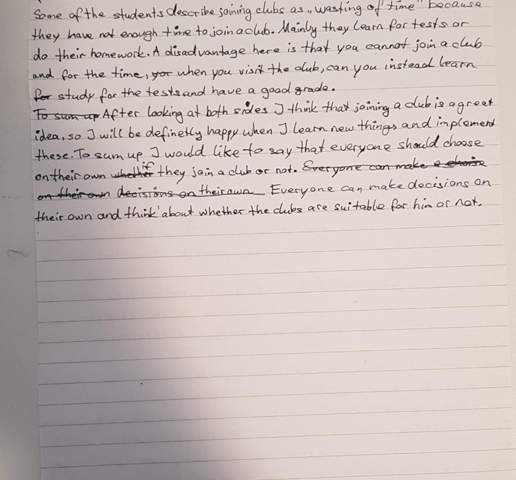 Some of the students describe joining clubs as „wasting of time" because
they have not enough time to join a club. Mainly they learn for tests or
do their homework. A disadvantage here is that you cannot join a club
and for the time, when you visit the club, can you instead learn
for study for the tests and have a good grade.
To sum up After looking at both sides I think that joining a club is a great
idea, so I will be definetly happy when I learn new things and inplement
these. To sum up I would like to say that everyone should choose
on their own whether if they join a club or not. Everyone can make a choise
on their own decisions on their own Everyone can make decisions on
their own and think about whether the clubs are suitable for him or not.